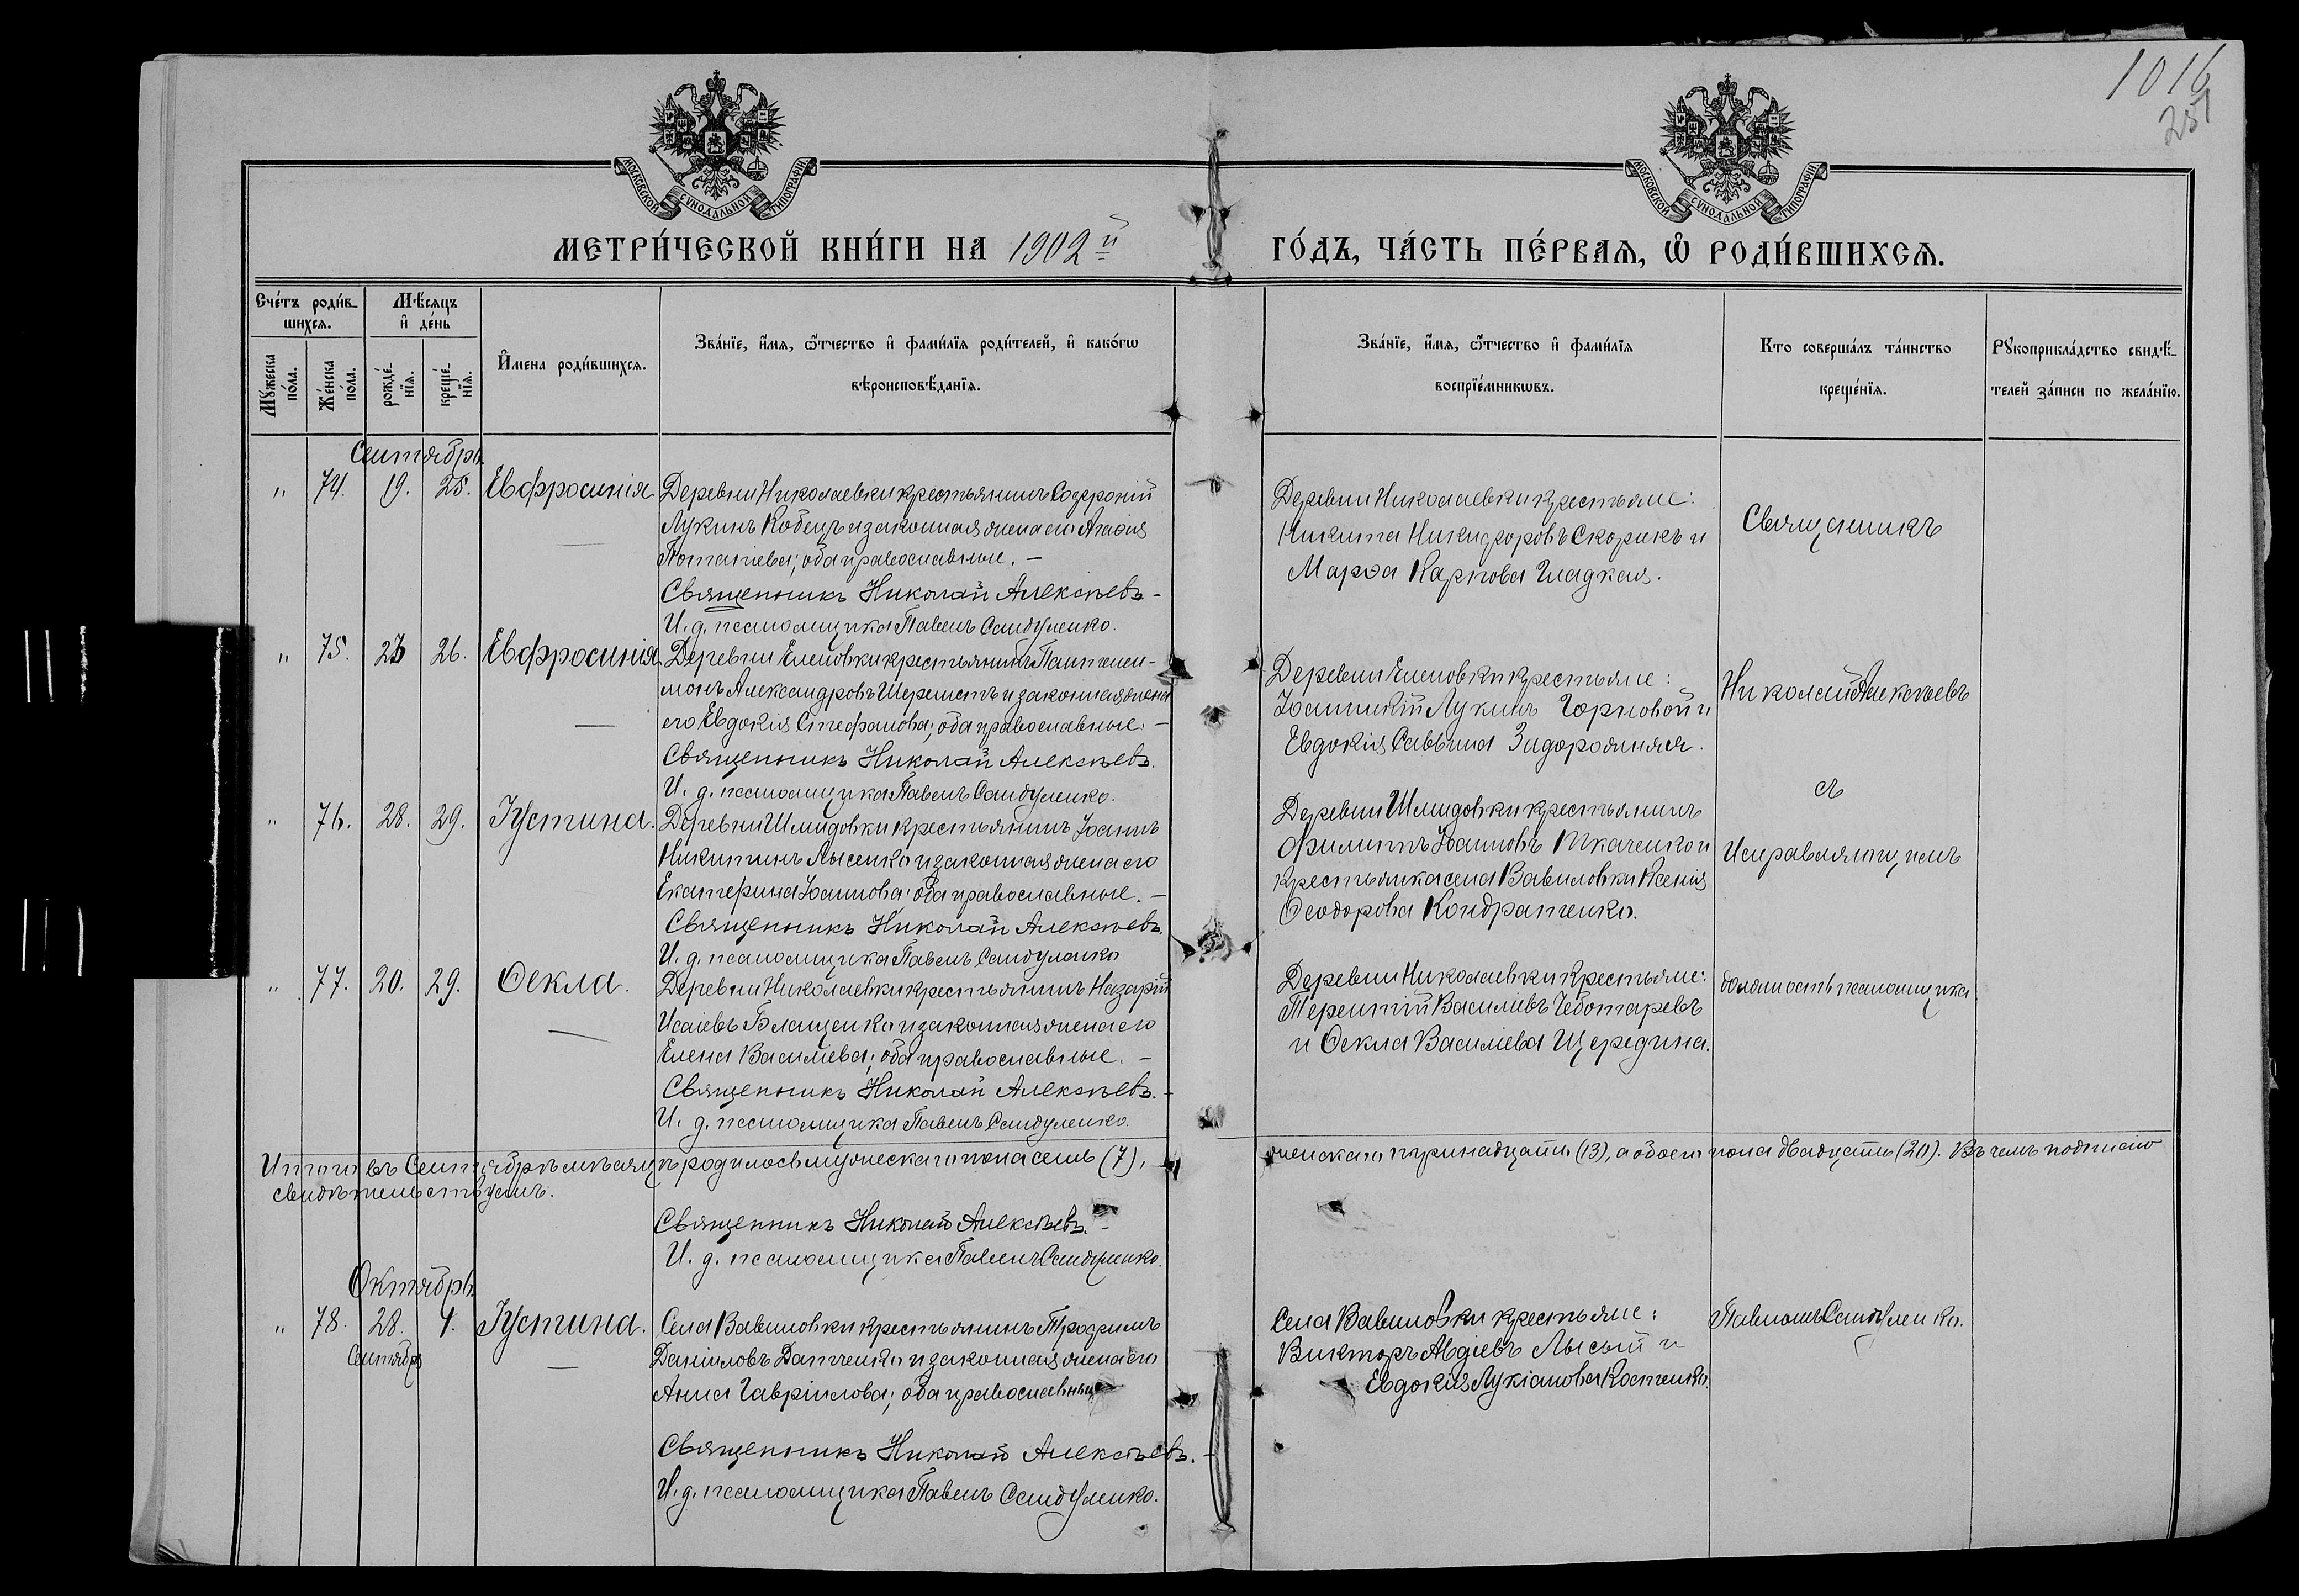 1016
251
МОСКОВСКОЙ СѴНОДАЛЬНОЙ ТИПОГРАФІИ
МОСКОВСКОЙ СѴНОДАЛЬНОЙ ТИПОГРАФІИ
МЕТРИ́ЧЕСКОЙ КНИ́ГИ НА 1902й
ГО́ДЪ, ЧА́СТЬ ПЕ́РВАѦ, Ѡ҆ РОДИ́ВШИХСѦ.
Сче́тъ роди́в-
шихсѧ.
Мꙋ́жеска по́ла.
Же́нска по́ла.
Мѣ́сѧцъ
и҆ де́нь
рожде́-нїѧ.
креще́-нїѧ.
И҆мена роди́вшихсѧ.
Зва́нїе, и҆́мѧ, ѻ҆́тчество и҆ фами́лїѧ роди́телей, и҆ како́гѡ
вѣроисповѣ́данїѧ.
Зва́нїе, и҆́мѧ, ѻ҆́тчество и҆ фами́лїѧ
воспрїе́мникѡвъ.
Кто соверша́лъ та́инство
креще́нїѧ.
Рꙋкоприкла́дство свидѣ́-
телей за́писи по жела́нїю.
Сентябрь
" 74. 19. 25. Евфросинія
Деревни Николаевки крестьянинъ Созероній
Лукинъ Кобецъ и законная жена его Агафія
Потапіева; оба православные. –
Священникъ Николай Алексѣевъ –
И. д. псаломщика Павелъ Сандуленко.
Деревни Николаевки крестьяне:
Никита Никифоровъ Скорикъ и
Марѳа Карпова Гладкая.
Священникъ
" 75. 23 26. Евфросинія
Деревни Еленовки крестьянинъ Пантелеи-
монъ Александровъ Шереметъ и законная жена
его Евдокія Стефанова; оба православные. –
Священникъ Николай Алексѣевъ.
И. д. псаломщика Павелъ Сандуленко.
Деревни Еленовки крестьяне:
Іоанникій Лукинъ Горновой и
Евдокія Саввина Задорожняя.
Николай Алексѣевъ
съ
" 76. 28. 29. Іустина.
Деревни Шмидовки крестьянинъ Іоаннъ
Никитинъ Лысенко и законная жена его
Екатерина Іоаннова; оба православные. –
Священникъ Николай Алексѣевъ.
И. д. псаломщика Павелъ Сандуленко
Деревни Шмидовки крестьянинъ
Филиппъ Іоанновъ Ткаченко и
крестьянка села Вавиловки Ксенія
Ѳеодорова Кондратенко.
Исправляющимъ
" 77. 20. 29. Ѳекла.
Деревни Николаевки крестьянинъ Назарій
Исаіевъ Блащенко и законная жена его
Елена Василіева; оба православные. –
Священникъ Николай Алексѣевъ. –
И. д. псаломщика Павелъ Сандуленко.
Деревни Николаевки крестьяне:
Терентій Василіевъ Чеботаревъ
и Ѳекла Василіева Щередина.
должность псаломщика
Итого въ Сентябрѣ мѣсяцѣ родилось мужескаго пола семь (7), женскаго тринадцать (13), а обоего пола двадцать (20). Въ чемъ подписью
свидѣтельствуемъ.
Священникъ Николай Алексѣевъ. –
И. д. псаломщика Павелъ Сандуленко.
Октябрь
" 78. 28. 4. Іустина.
Сентября
Села Вавиловки крестьянинъ Трофимъ
Даніиловъ Датченко и законная жена его
Анна Гавріилова; оба православные
Священникъ Николай Алексѣевъ. –
И. д. псаломщика Павелъ Сандуленко.
Села Вавиловки крестьяне:
Викторъ Авдіевъ Лысый и
Евдокія Лукіанова Костенко.
Павломъ Сандуленко.